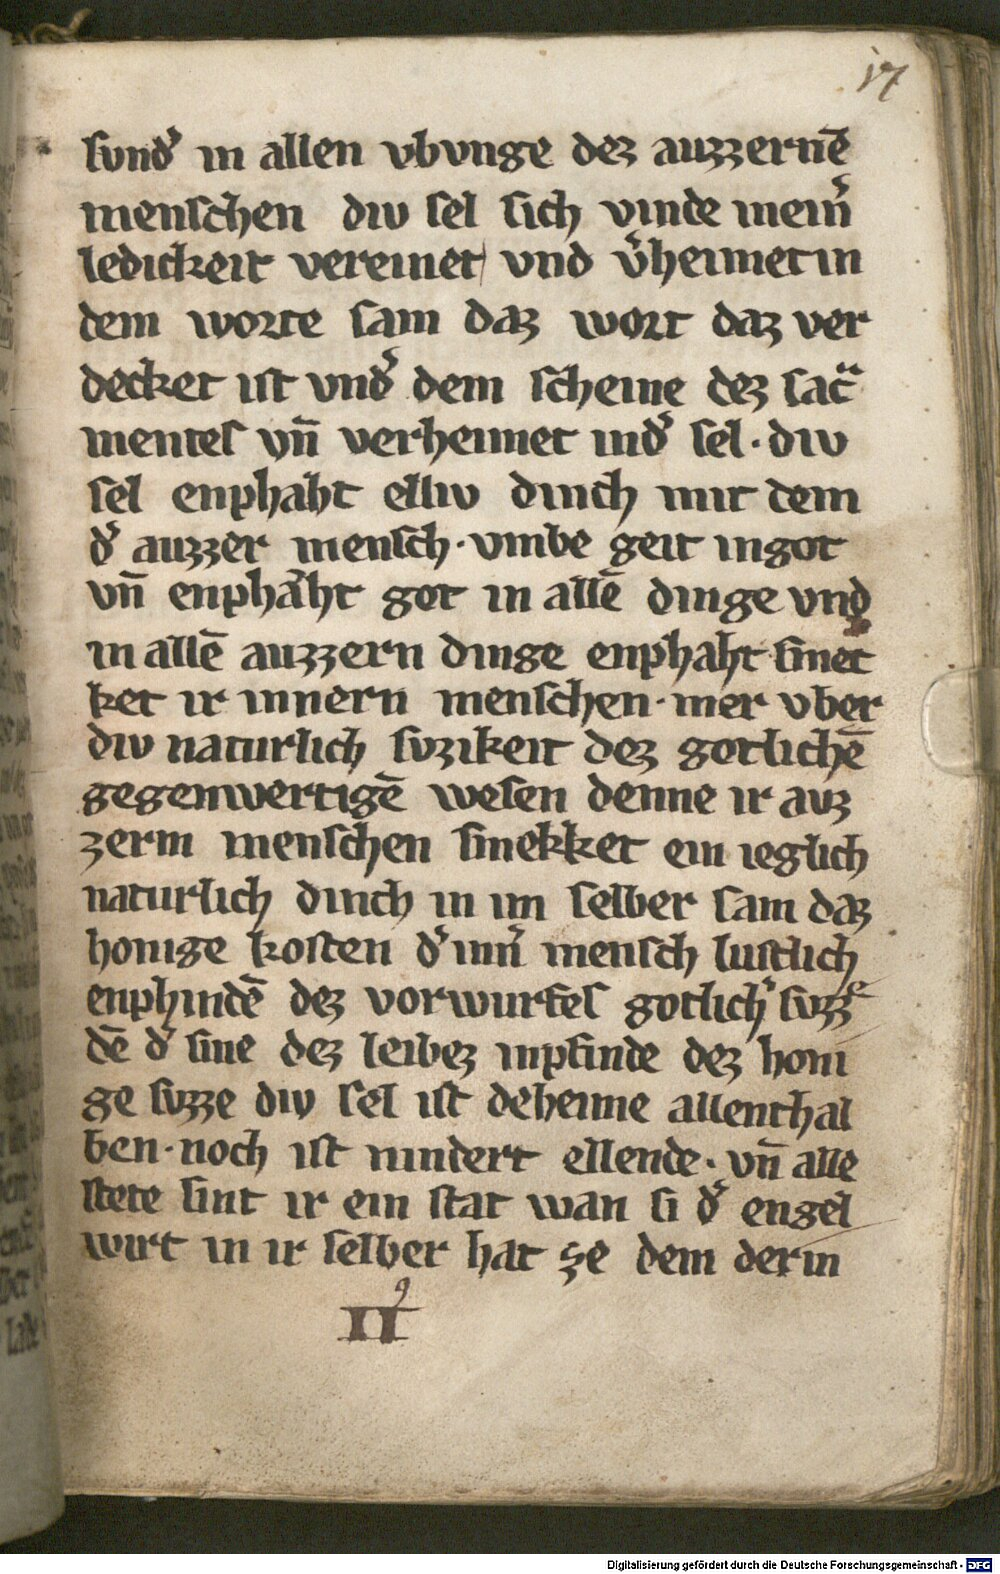 17
sund᷑ in allen vbunge dez auzzernē
menschen diu sel sich vinde in ein᷑
ledickeit vereinet vnd v᷑heimet in
dem worte sam daz wort daz ver
decket ist vnd᷑ dem scheine dez sac᷑
mentes vn̄ verheimet in d᷑ sel · diu
sel enphaht elliu dinch mit dem
d᷑ auzzer mensch · vmbe geit in got
vn̄ enphaht got in allē dinge vnd
in allē auzzern dinge enphaht smec
ket ir innern menschen · mer vber
diu naturlich suzikeit dez gotlichē
gegenwertigē wesen denne ir auz
zerm menschen smekket ein ieglich
naturlich dinch in im selber sam daz
honige kosten d᷑ inn᷑ mensch lustlich
enphindē dez vorwurfes gotlich᷑ suzze
dē d᷑ sine dez leibez inpfinde dez honi
ge suzze diu sel ist deheime allenthal
ben · noch ist nindert ellende · vn̄ alle
stete sint ir ein stat wan si d᷑ engel
wirt in ir selber hat ze dem der in
II⁹
Digitalisierung gefördert durch die Deutsche Forschungsgemeinschaft - DFG